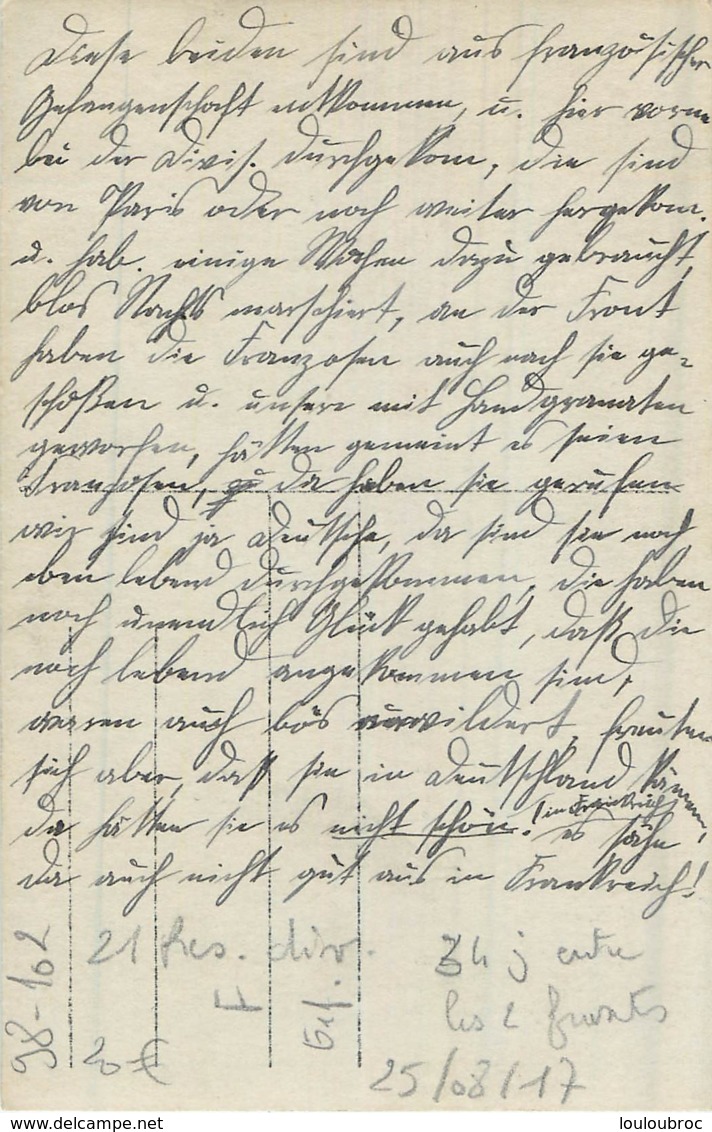 Diese beiden sind aus französischer
Gefangenschaft entkommen, u. hier vorne
bei der Divis. durchgekom, die sind
von Paris oder noch weiter hergekom.
u. hab. einige Wochen dazu gebraucht,
blos Nachts marschiert, an der Front
haben die Franzosen auch nach sie ge-
schoßen u. unsere mit Handgranaten
geworfen, hätten gemeint es seien
Franzosen, da haben sie gerufen
wir sind ja Deutsche, da sind sie noch
eben lebend durchgekommen, die haben
noch unendlich Glück gehabt, daß die
noch lebend angekommen sind,
waren auch bös verwildert, freuten
sich aber, daß sie in Deutschland kämen,
da hätten sie es nicht schön! in Frankreich, es sähe
da auch nicht gut aus in Frankreich!
98-162
21 Res. div.
Gef.
20 €
34 j entre
les 2 fronts
25/08/17
louloubroc